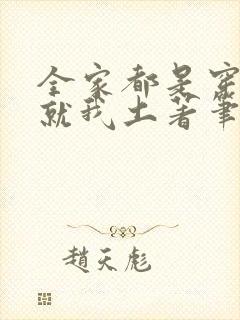 全家都是穿
就我土著筆
趙天彪